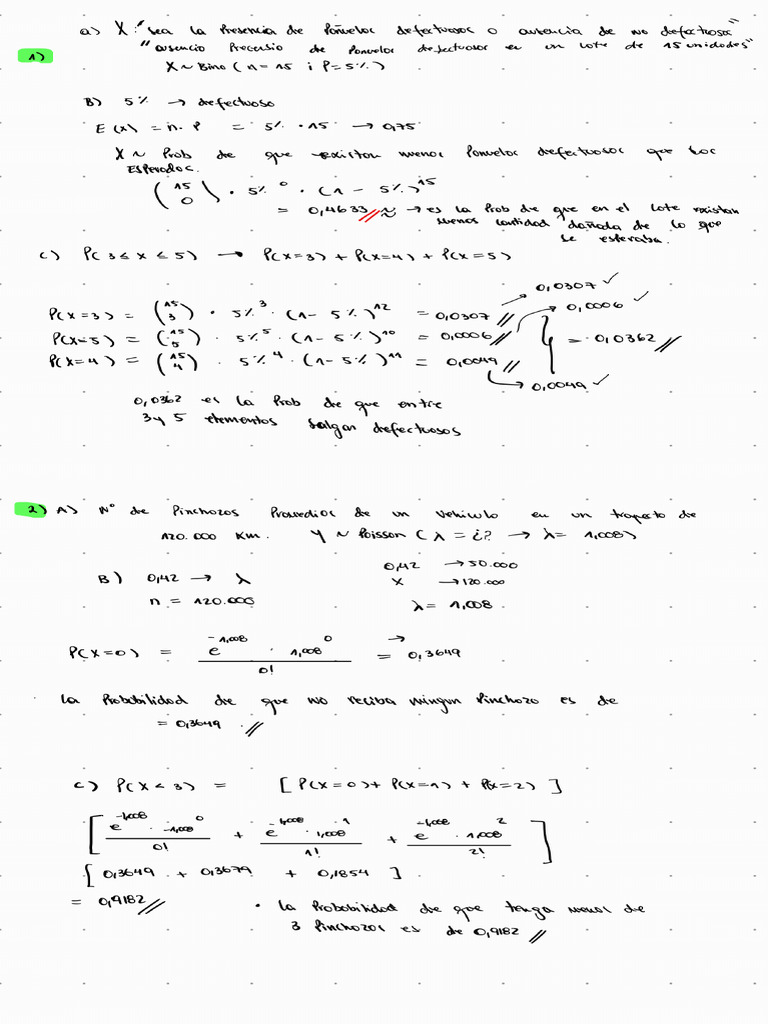 a) X: "sea la Presencia de Pañuelos defectuosos o ausencia de no defectuosos"
1)
"ausencio Precensio de Ponuelos defectuosos en un lote de 15 unidades"
X ~ Bino ( n = 15 i P = 5% )
B) 5% → defectuoso
E(x) = n. P = 5% · 15 → 0,75
X ~ Prob de que existan menos Panuelos defectuosos que los
ESPERADOS.
(15 0) · 5%^0 · (1 - 5%)^15
= 0,4633 // ≈ → es la Prob de que en el lote existan
menos cantidad dañada de lo que
se esperaba.
c) P(3 ≤ x ≤ 5) → P(x=3) + P(x=4) + P(x=5)
P(x=3) = (15 3) · 5%^3 · (1 - 5%)^12 = 0,0307 // → 0,0307 ✓
P(x=5) = (15 5) · 5%^5 · (1 - 5%)^10 = 0,0006 // → 0,0006 ✓ } = 0,0362 //
P(x=4) = (15 4) · 5%^4 · (1 - 5%)^11 = 0,0049 // → 0,0049 ✓
0,0362 es la Prob de que entre
3 y 5 elementos salgan defectuosos
2) A) N° de Pinchozos Promedios de un vehiculo en un trayecto de
120.000 Km. Y ~ Poisson ( λ = ¿? → λ = 1,008 )
0,42 → 50.000
B) 0,42 → λ x → 120.000
n = 120.000 λ = 1,008 .
P(x=0) = e^-1,008 · 1,008^0 / 0! = → 0,3649
La Probabilidad de que no reciba ningun Pinchozo es de
= 0,3649 . //
c) P(x < 3) = [ P(x=0) + P(x=1) + P(x=2) ]
[ e^-1,008 · -1,008^0 / 0! + e^-1,008 · 1,008^1 / 1! + e^-1,008 · 1,008^2 / 2! ]
[ 0,3649 + 0,3679 + 0,1854 ]
= 0,9182 // • La Probabilidad de que tenga menos de
3 Pinchozos es de 0,9182 //